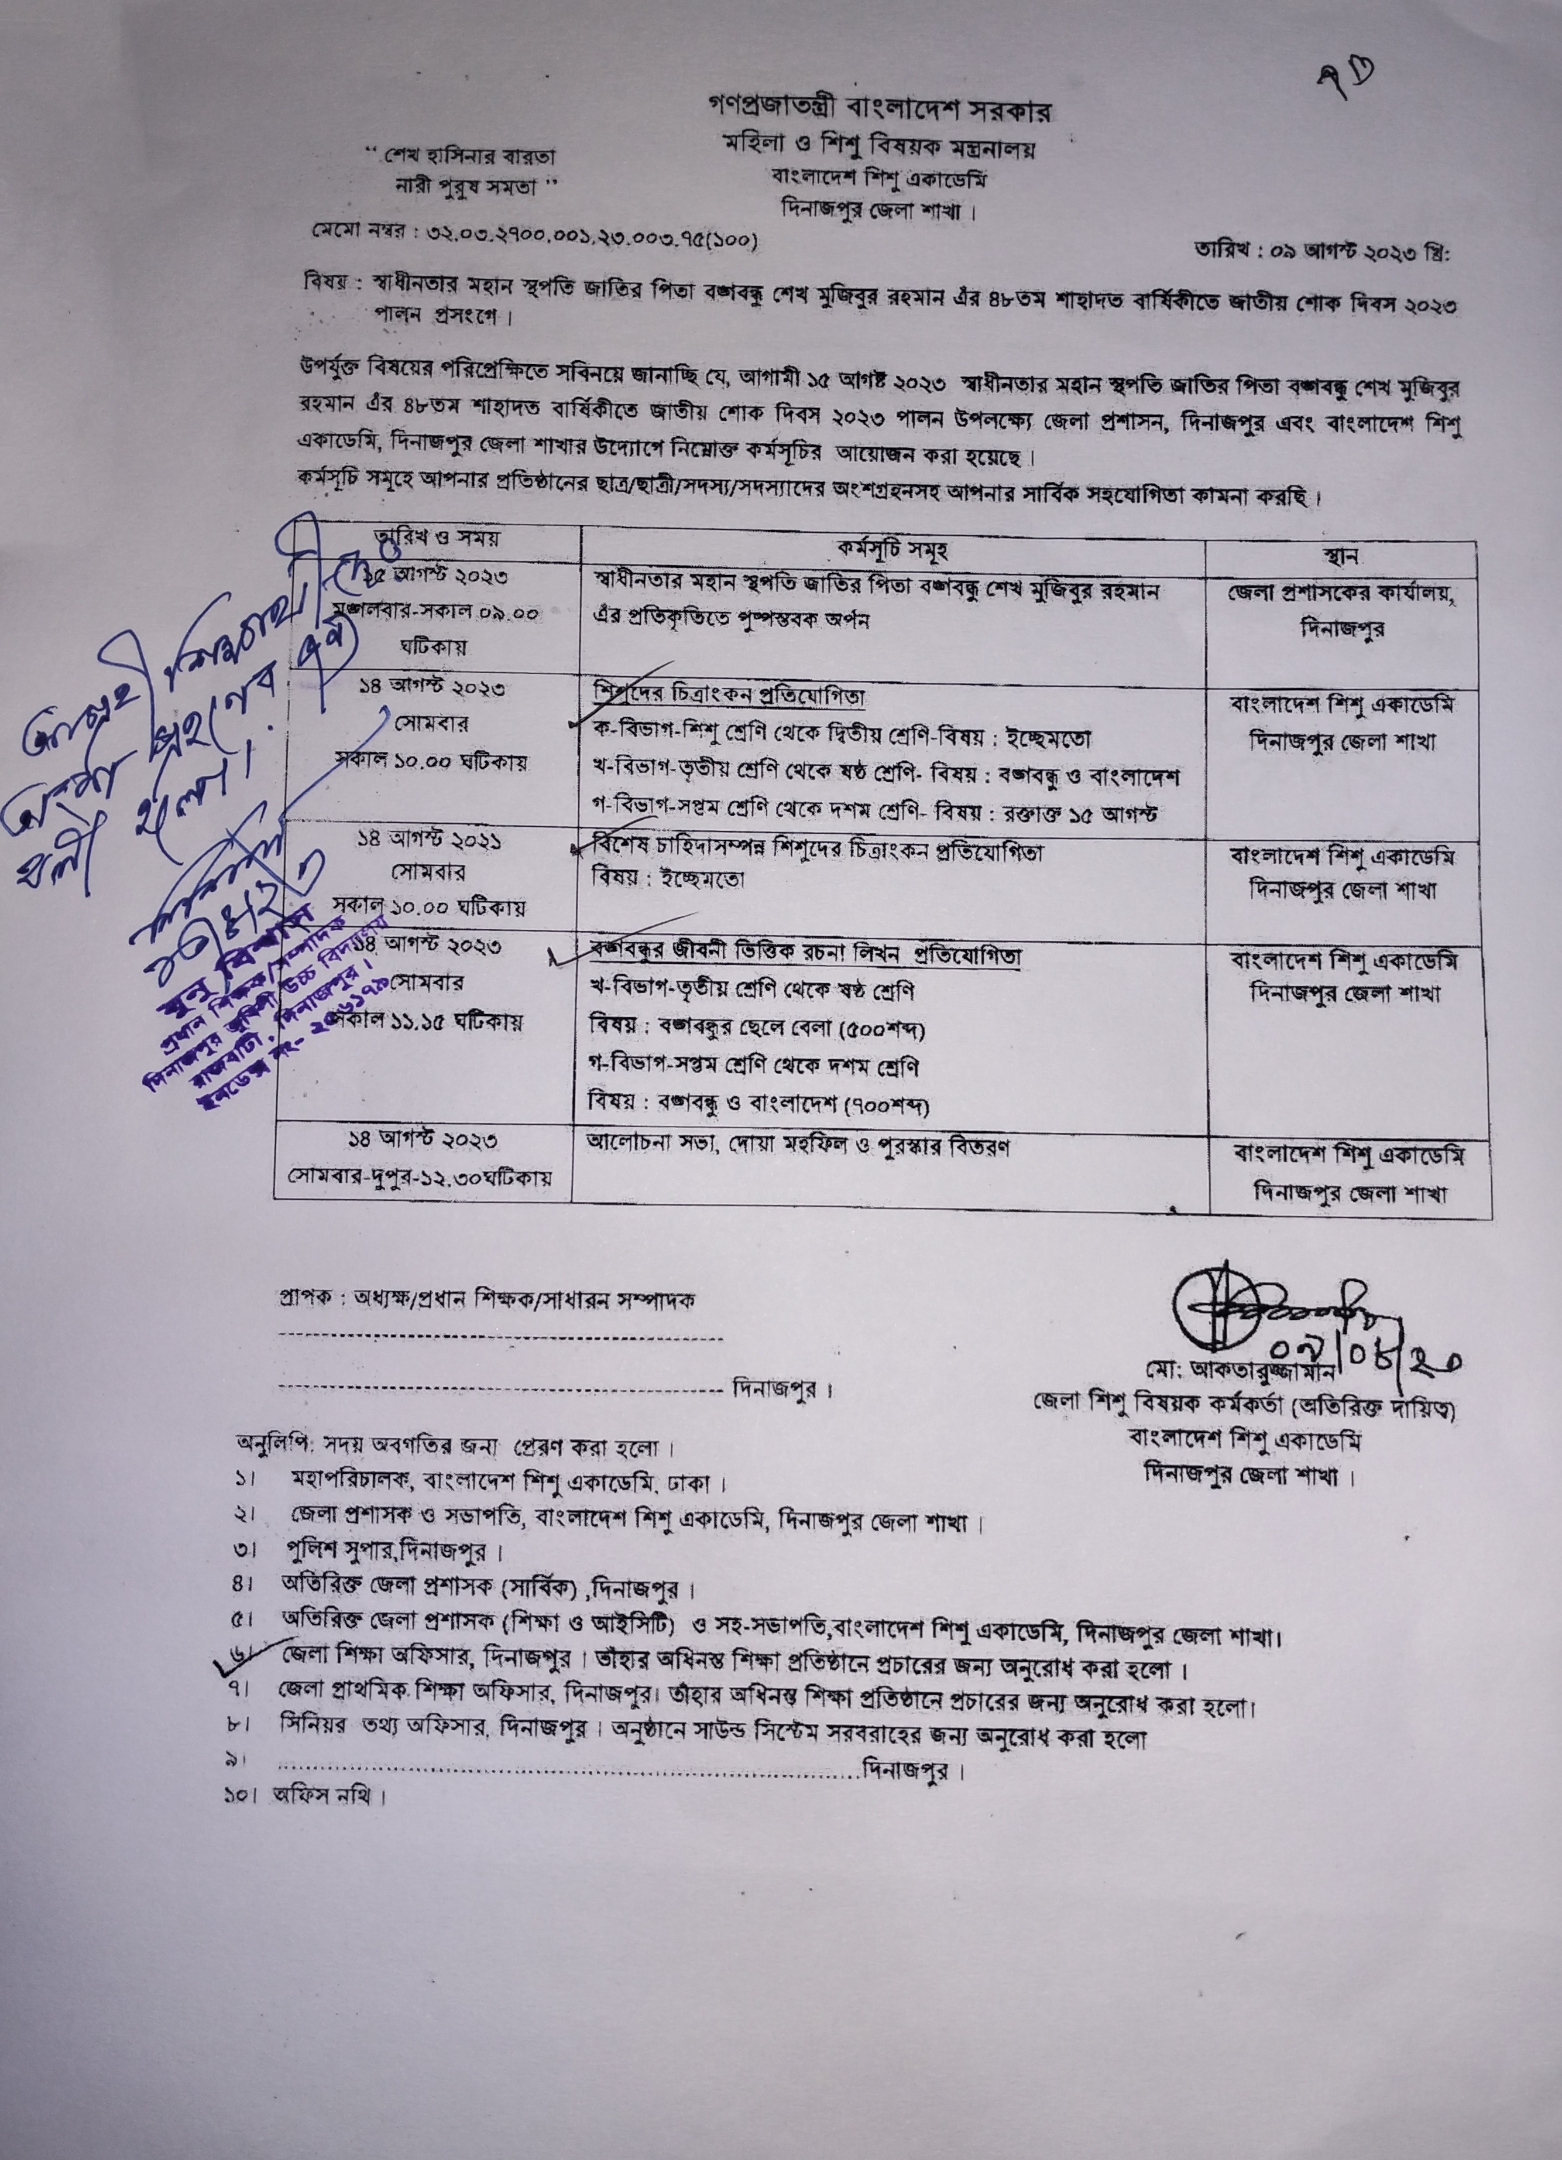 গণপ্রজাতন্ত্রী বাংলাদেশ সরকার
মহিলা ও শিশু বিষয়ক মন্ত্রনালয়
বাংলাদেশ শিশু একাডেমি
দিনাজপুর জেলা শাখা।
“ শেখ হাসিনার বারতা
নারী পুরুষ সমতা ”
মেমো নম্বর : ৩২.০৩.২৭০০.০০১.২৩.০০৩.৭৫(১০০)
তারিখ : ০৯ আগস্ট ২০২৩ খ্রি:
বিষয় : স্বাধীনতার মহান স্থপতি জাতির পিতা বঙ্গবন্ধু শেখ মুজিবুর রহমান এঁর ৪৮তম শাহাদত বার্ষিকীতে জাতীয় শোক দিবস ২০২৩
পালন প্রসংগে।
উপর্যুক্ত বিষয়ের পরিপ্রেক্ষিতে সবিনয়ে জানাচ্ছি যে, আগামী ১৫ আগষ্ট ২০২৩ স্বাধীনতার মহান স্থপতি জাতির পিতা বঙ্গবন্ধু শেখ মুজিবুর
রহমান এঁর ৪৮তম শাহাদত বার্ষিকীতে জাতীয় শোক দিবস ২০২৩ পালন উপলক্ষ্যে জেলা প্রশাসন, দিনাজপুর এবং বাংলাদেশ শিশু
একাডেমি, দিনাজপুর জেলা শাখার উদ্যোগে নিম্নোক্ত কর্মসূচির আয়োজন করা হয়েছে।
কর্মসূচি সমূহে আপনার প্রতিষ্ঠানের ছাত্র/ছাত্রী/সদস্য/সদস্যাদের অংশগ্রহনসহ আপনার সার্বিক সহযোগিতা কামনা করছি।
তারিখ ও সময়
কর্মসূচি সমূহ
স্থান
১৫ আগস্ট ২০২৩
মঙ্গলবার-সকাল ০৯.০০
ঘটিকায়
স্বাধীনতার মহান স্থপতি জাতির পিতা বঙ্গবন্ধু শেখ মুজিবুর রহমান
এঁর প্রতিকৃতিতে পুষ্পস্তবক অর্পন
জেলা প্রশাসকের কার্যালয়,
দিনাজপুর
১৪ আগস্ট ২০২৩
সোমবার
সকাল ১০.০০ ঘটিকায়
শিশুদের চিত্রাংকন প্রতিযোগিতা
ক-বিভাগ-শিশু শ্রেণি থেকে দ্বিতীয় শ্রেণি-বিষয় : ইচ্ছেমতো
খ-বিভাগ-তৃতীয় শ্রেণি থেকে ষষ্ঠ শ্রেণি- বিষয় : বঙ্গবন্ধু ও বাংলাদেশ
গ-বিভাগ-সপ্তম শ্রেণি থেকে দশম শ্রেণি- বিষয় : রক্তাক্ত ১৫ আগস্ট
বাংলাদেশ শিশু একাডেমি
দিনাজপুর জেলা শাখা
১৪ আগস্ট ২০২১
সোমবার
সকাল ১০.০০ ঘটিকায়
বিশেষ চাহিদাসম্পন্ন শিশুদের চিত্রাংকন প্রতিযোগিতা
বিষয় : ইচ্ছেমতো
বাংলাদেশ শিশু একাডেমি
দিনাজপুর জেলা শাখা
১৪ আগস্ট ২০২৩
সোমবার
সকাল ১১.১৫ ঘটিকায়
বঙ্গবন্ধুর জীবনী ভিত্তিক রচনা লিখন প্রতিযোগিতা
খ-বিভাগ-তৃতীয় শ্রেণি থেকে ষষ্ঠ শ্রেণি
বিষয় : বঙ্গবন্ধুর ছেলে বেলা (৫০০শব্দ)
গ-বিভাগ-সপ্তম শ্রেণি থেকে দশম শ্রেণি
বিষয় : বঙ্গবন্ধু ও বাংলাদেশ (৭০০শব্দ)
বাংলাদেশ শিশু একাডেমি
দিনাজপুর জেলা শাখা
১৪ আগস্ট ২০২৩
সোমবার-দুপুর-১২.৩০ঘটিকায়
আলোচনা সভা, দোয়া মহফিল ও পুরস্কার বিতরণ
বাংলাদেশ শিশু একাডেমি
দিনাজপুর জেলা শাখা
আগ্রহী শিক্ষার্থীদেরকে
অংশ গ্রহণের জন্য
বলা হলো।
১৩/৮/২৩
প্রধান শিক্ষক/সম্পাদক
দিনাজপুর জুবিলী উচ্চ বিদ্যালয়
রাজবাটী, দিনাজপুর।
প্রাপক : অধ্যক্ষ/প্রধান শিক্ষক/সাধারন সম্পাদক
দিনাজপুর।
০৯/০৮/২৩
মো: আকতারুজ্জামান
জেলা শিশু বিষয়ক কর্মকর্তা (অতিরিক্ত দায়িত্ব)
বাংলাদেশ শিশু একাডেমি
দিনাজপুর জেলা শাখা।
অনুলিপি: সদয় অবগতির জন্য প্রেরণ করা হলো।
১। মহাপরিচালক, বাংলাদেশ শিশু একাডেমি, ঢাকা।
২। জেলা প্রশাসক ও সভাপতি, বাংলাদেশ শিশু একাডেমি, দিনাজপুর জেলা শাখা।
৩। পুলিশ সুপার,দিনাজপুর।
৪। অতিরিক্ত জেলা প্রশাসক (সার্বিক) ,দিনাজপুর।
৫। অতিরিক্ত জেলা প্রশাসক (শিক্ষা ও আইসিটি) ও সহ-সভাপতি,বাংলাদেশ শিশু একাডেমি, দিনাজপুর জেলা শাখা।
৬। জেলা শিক্ষা অফিসার, দিনাজপুর। তাঁহার অধিনস্ত শিক্ষা প্রতিষ্ঠানে প্রচারের জন্য অনুরোধ করা হলো।
৭। জেলা প্রাথমিক শিক্ষা অফিসার, দিনাজপুর। তাঁহার অধিনস্ত শিক্ষা প্রতিষ্ঠানে প্রচারের জন্য অনুরোধ করা হলো।
৮। সিনিয়র তথ্য অফিসার, দিনাজপুর। অনুষ্ঠানে সাউন্ড সিস্টেম সরবরাহের জন্য অনুরোধ করা হলো
৯। ........................................................................দিনাজপুর।
১০। অফিস নথি।